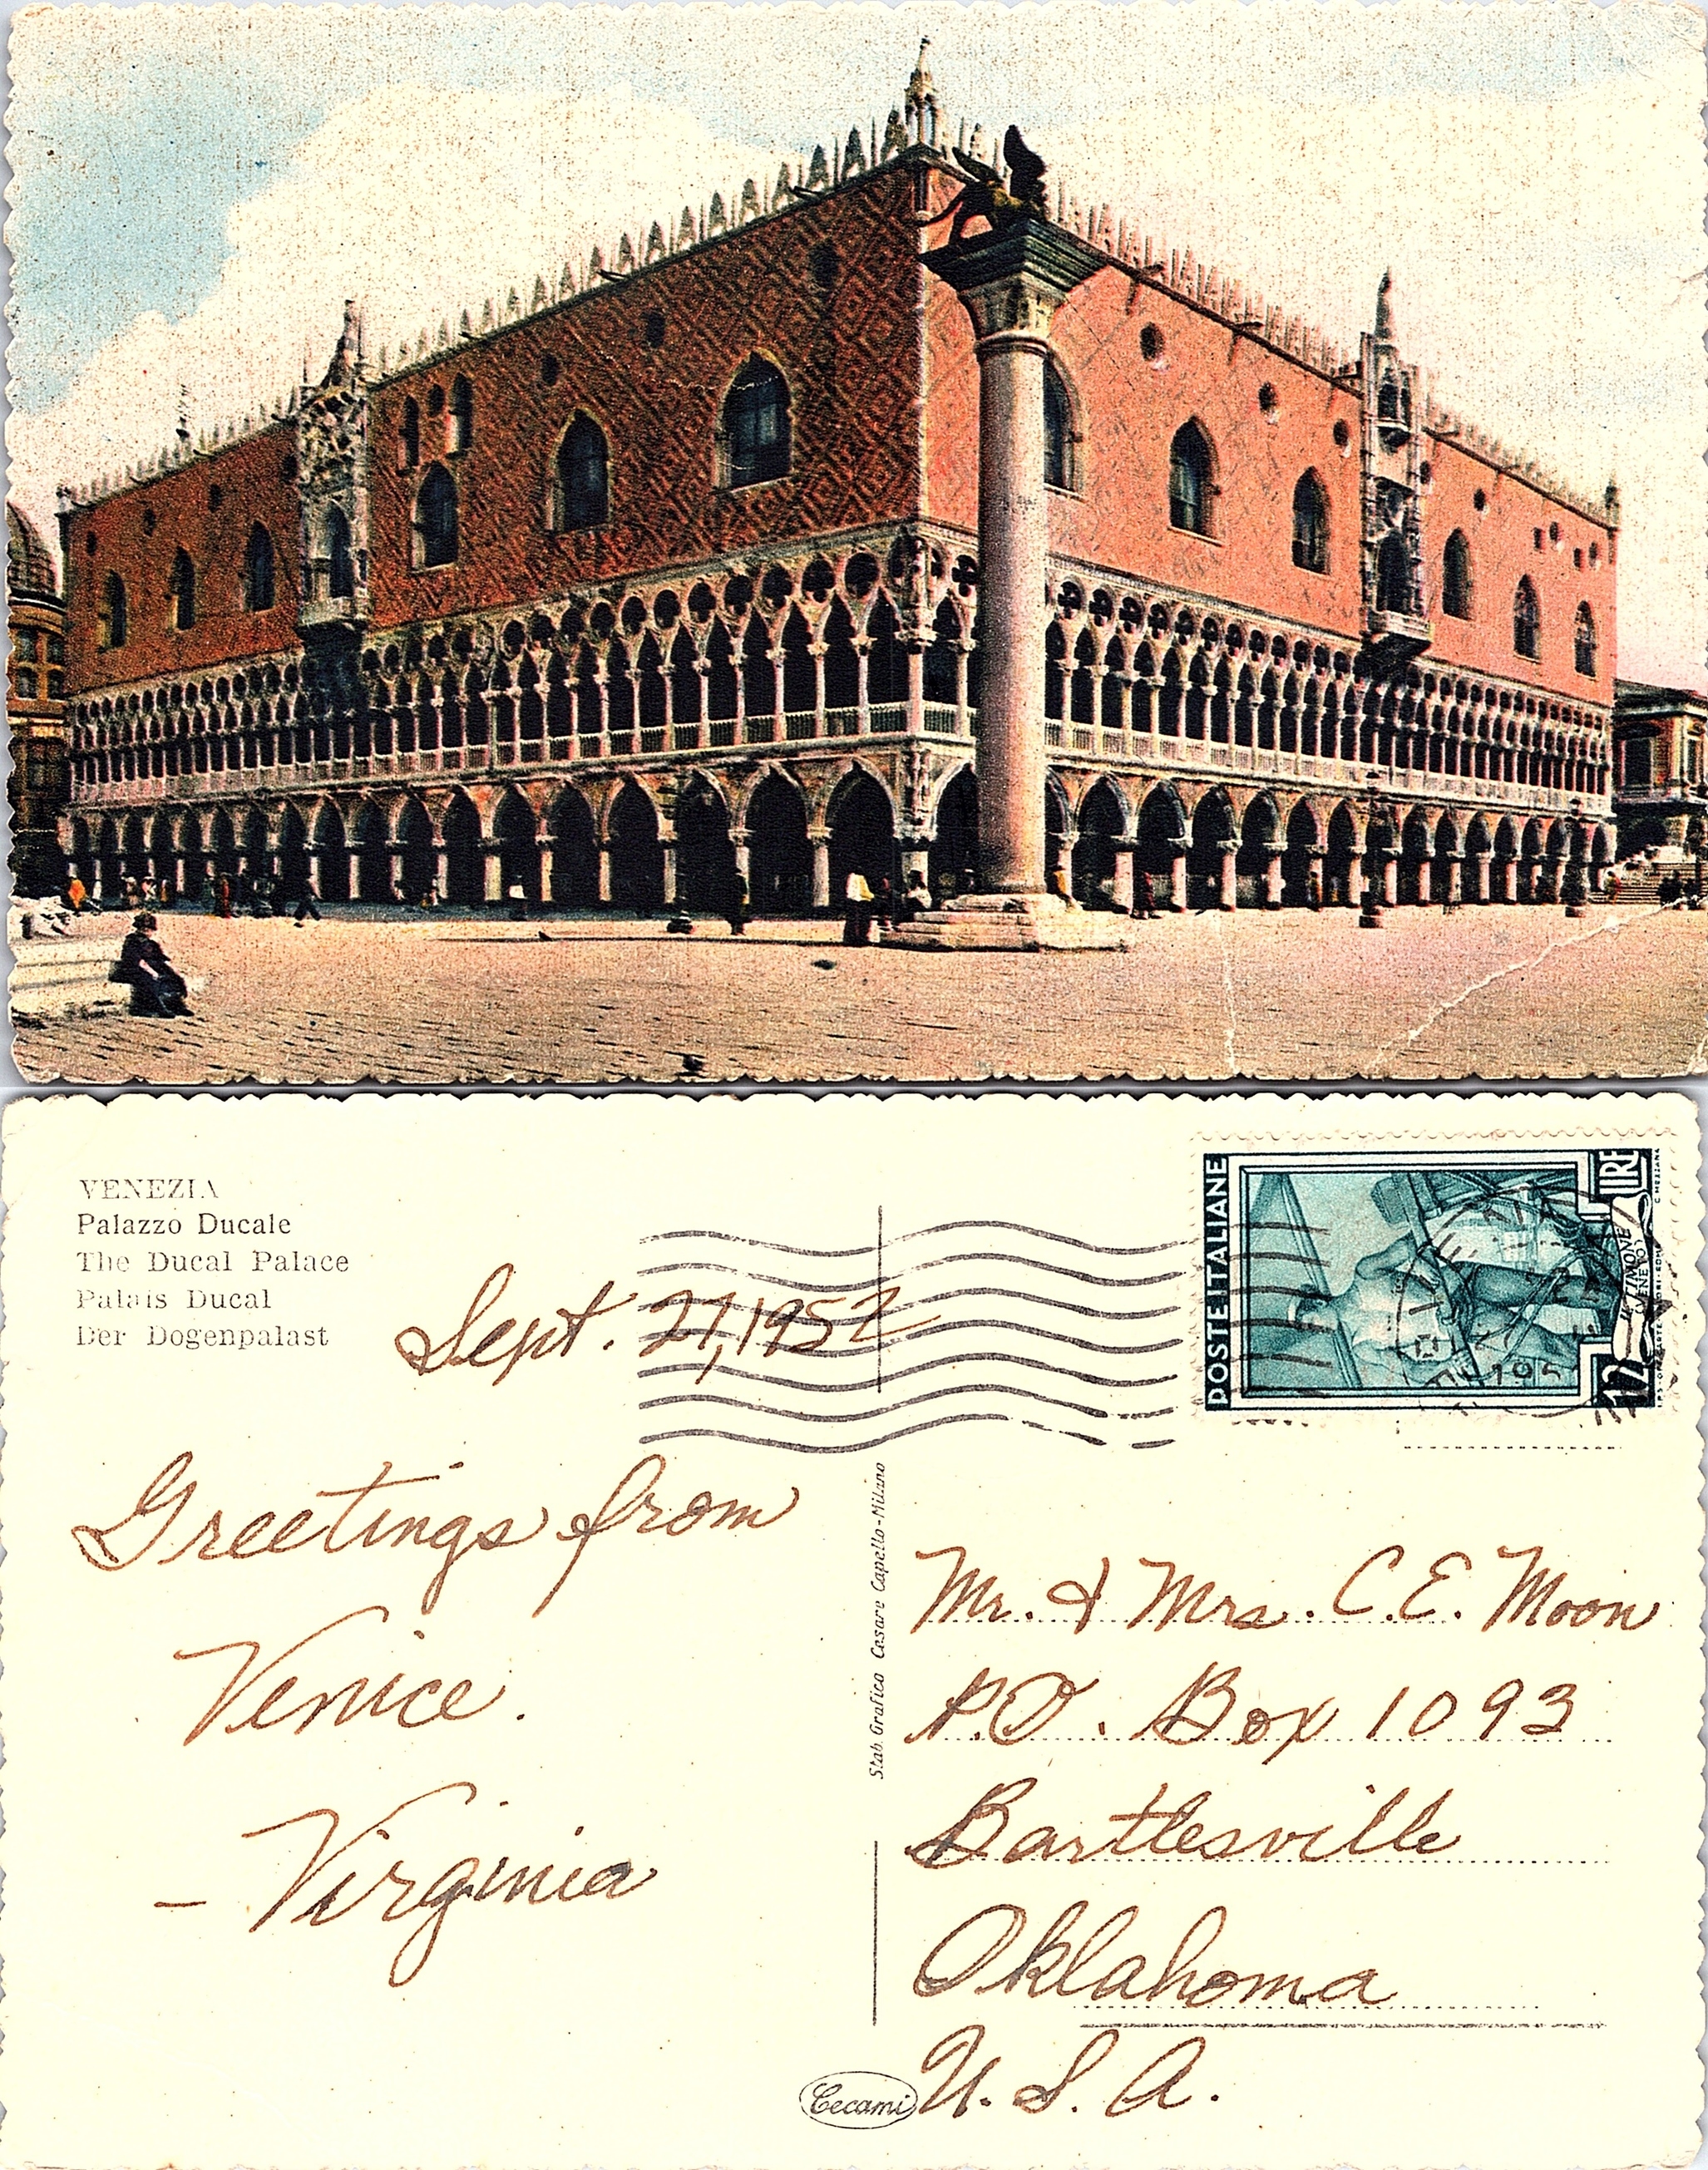 VENEZIA
Palazzo Ducale
The Ducal Palace
Palais Ducal
Der Dogenpalast
Sept. 27, 1952
Greetings from
Venice.
– Virginia
Stab. Grafico Cesare Capello - Milano
POSTE ITALIANE
LIRE
12
IL TIMONE
VENETO
C. MEZZANA
Mr. & Mrs. C.E. Moon
P.O. Box 1093
Bartlesville
Oklahoma
U.S.A.
Cecami